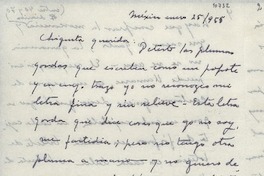 México enero 25/958
Chiquita querida: Detesto las plumas
gordas que escriben como un popote
y en cuyo trazo yo no reconozco mi
letra fina y sin relieve. Esta letra
gorda que dice cosas que yo no soy,
me fastidia; pero no tengo otra
pluma a mano y no quiero de